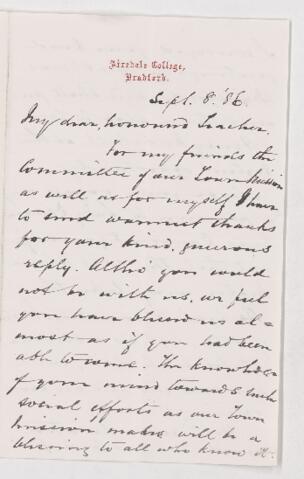 Airedale College,
Bradford.
Sept. 8. '86.
My dear, honoured Teacher.
For my friends the
Committee of our Town Mission
as well as for myself I have
to send warmest thanks
for your kind, generous
reply. Altho' you could
not be with us, we feel
you have blessed us al-
most as if you had been
able to come. The knowledge
of your mind towards such
social efforts as our Town
Mission makes will be a
blessing to all who know it.